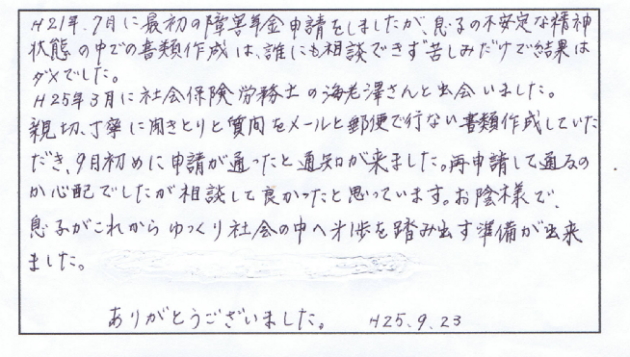 H21年.7月に最初の障害年金申請をしましたが、息子の不安定な精神
状態の中での書類作成は、誰にも相談できず苦しみだけで結果は
ダメでした。
H25年3月に社会保険労務士の海老澤さんと出会いました。
親切、丁寧に聞きとりと質問をメールと郵便で行ない書類作成していた
だき、9月初めに申請が通ったと通知が来ました。再申請して通るの
か心配でしたが相談して良かったと思っています。お陰様で、
息子がこれからゆっくり社会の中へ㐧1歩を踏み出す準備が出来
ました。
ありがとうございました。 H25.9.23